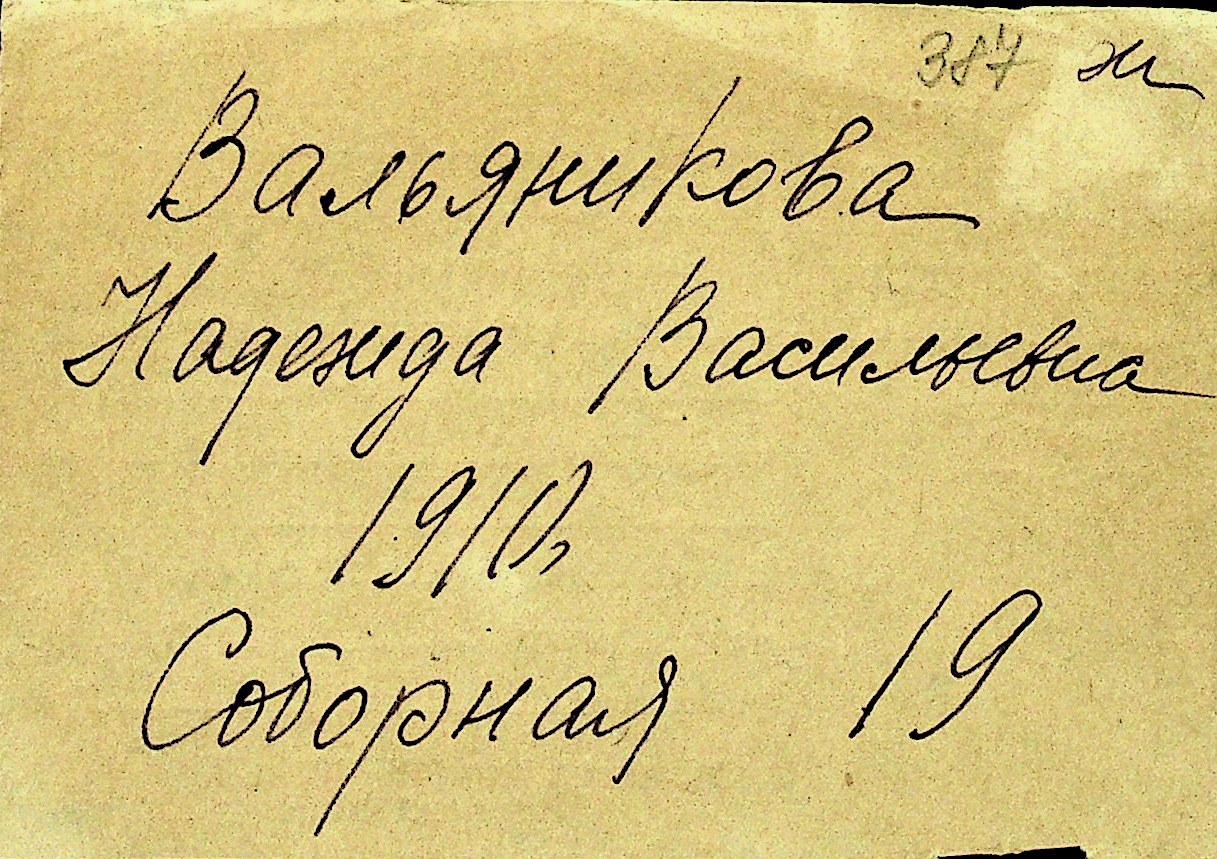 387 ж
Вальяникова
Надежда Васильевна
1910,
Соборная 19